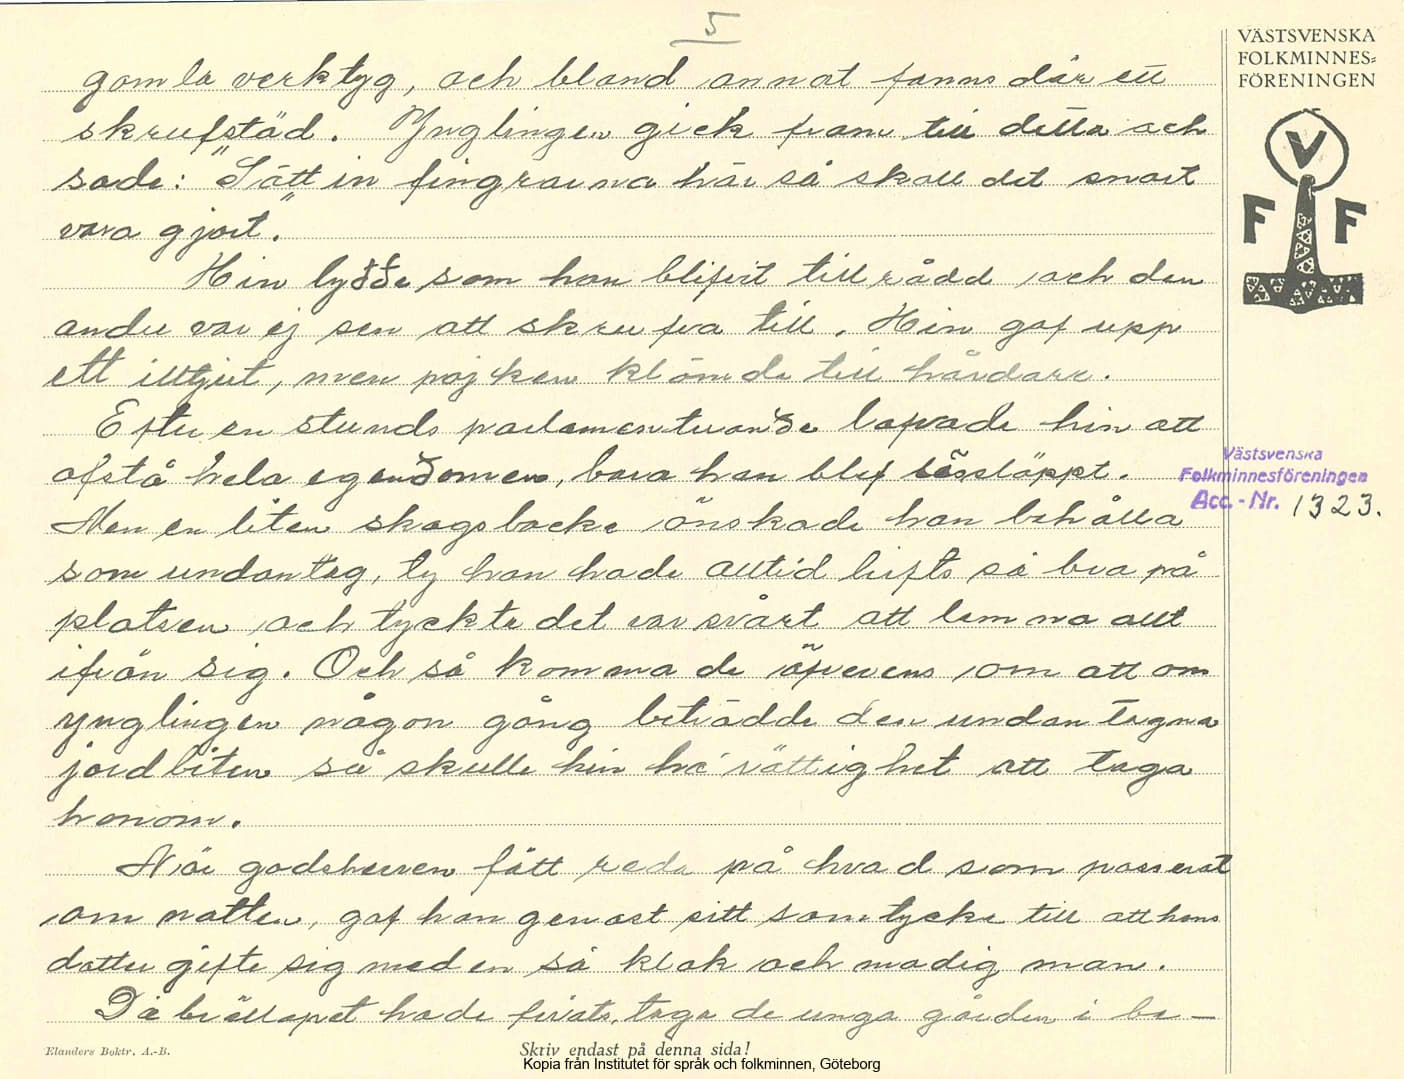 5
VÄSTSVENSKA
FOLKMINNES=
FÖRENINGEN
V
F F
gamla verktyg, och bland annat fanns där ett
skrufstäd. Ynglingen gick fram till detta och
sade: "Sätt in fingrarna här så skall det snart
vara gjort."
Hin lydde som han blifvit tillrådd och den
andre var ej sen att skrufva till. Hin gaf upp
ett illtjut, men pojken klämde till hårdare.
Efter en stunds parlamenterande lofvade hin att
afstå hela egendomen, bara han blef lössläppt.
Men en liten skogsbacke önskade han behålla
som undantag, ty han hade alltid lifts så bra på
platsen och tyckte det var svårt att lemna allt
ifrån sig. Och så komma de öfverens om att om
ynglingen någon gång beträdde den undantagna
jordbiten så skulle hin ha rättighet att taga
honom.
När godsherren fått reda på hvad som passerat
om natten, gaf han genast sitt samtycke till att hans
dotter gifte sig med en så klok och modig man.
Då bröllopet hade firats, toga de unga gården i be-
Västsvenska
Folkminnesföreningen
Acc.-Nr. 1323.
Elanders Boktr. A.-B.
Skriv endast på denna sida!
Kopia från Institutet för språk och folkminnen, Göteborg